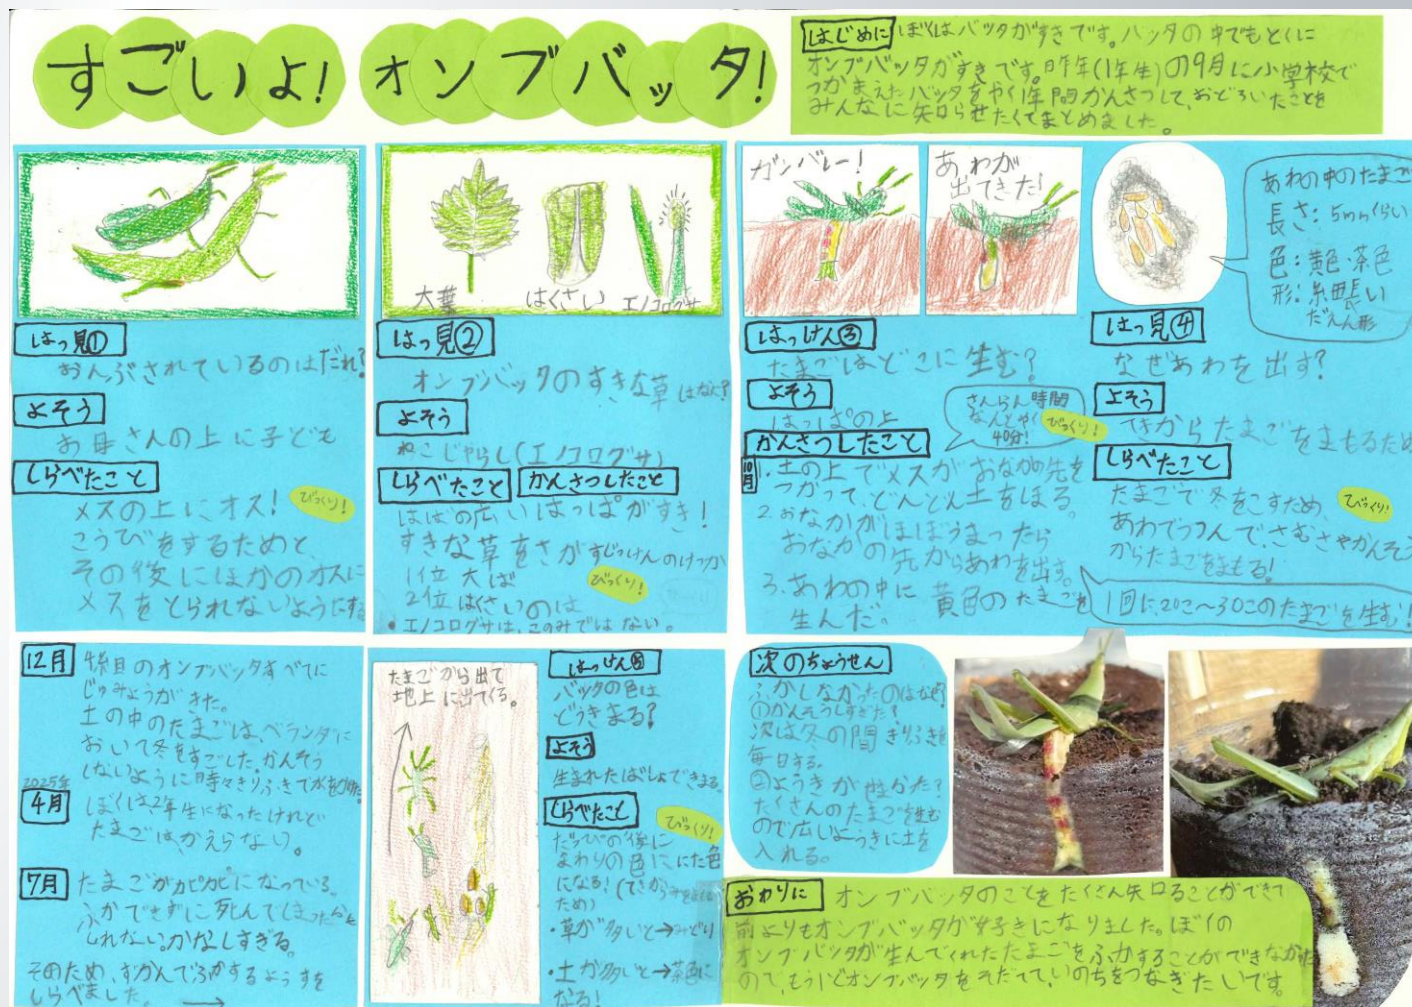 すごいよ! オンブバッタ!
はじめに ぼくはバッタがすきです。バッタの中でもとくに
オンブバッタがすきです。昨年(1年生)の9月に小学校で
つかまえたバッタをやく1年間かんさつして、おどろいたことを
みんなに知らせたくてまとめました。
はっ見①
おんぶされているのはだれ?
よそう
お母さんの上に子ども
しらべたこと
メスの上にオス! びっくり!
こうびをするためと、
その後にほかのオスに
メスをとられないようにする
大葉 はくさい エノコログサ
はっ見②
オンブバッタのすきな草はなに?
よそう
ねこじゃらし(エノコログサ)
しらべたこと かんさつしたこと
はばの広いはっぱがすき!
すきな草をさがすじっけんのけっか
1位 大ば
2位 はくさいのは
びっくり!
・エノコログサは、このみではない。
ガンバレー!
あわが
出てきた!
はっけん③
たまごはどこに生む?
よそう
はっぱの上
さんらん時間
なんとやく
40分!
びっくり!
かんさつしたこと
10月
1.土の上でメスがおなかの先を
つかって、どんどん土をほる。
2.おなかがほぼうまったら
おなかの先からあわを出す。
3.あわの中に黄色のたまごを
生んだ。
1回に20こ〜30このたまごを生む!
あわの中のたまご
長さ:5mmくらい
色:黄色・茶色
形:細長い
だえん形
はっ見④
なぜあわを出す?
よそう
てきからたまごをまもるため
しらべたこと
たまごで冬をこすため、 びっくり!
あわでつつんで、さむさやかんそう
からたまごをまもる!
12月 4姉目のオンブバッタすべてに
じゅみょうがきた。
土の中のたまごは、ベランダに
おいて冬をすごした。かんそう
しないように時々きりふきで
2025年
4月 ぼくは2年生になったけれど
たまごはかえらない。
7月 たまごがカピカピになっている。
ふかできずに死んでしまったかも
しれない。かなしすぎる。
そのため、ずかんでふかするようすを
しらべました。→
たまごから出て
地上に出てくる。
はっけん⑤
バッタの色は
どうきまる?
よそう
生まれたばしょできまる。
しらべたこと
びっくり!
だっぴの後に
まわりの色ににた色
になる!(てきから
ため)
・草が多いと→みどり
・土が多いと→茶色に
なる!
次のちょうせん
ふかしなかったのはなぜ?
①かんそうしすぎた?
次は冬の間きりふきを
毎日する。
②ようきがせまかった?
たくさんのたまごを生む
ので広いようきに土を
入れる。
おわりに オンブバッタのことをたくさん知ることができて
前よりもオンブバッタが好きになりました。ぼくの
オンブバッタが生んでくれたたまごをふかすることができなかった
ので、もういちどオンブバッタをそだてていのちをつなぎたいです。